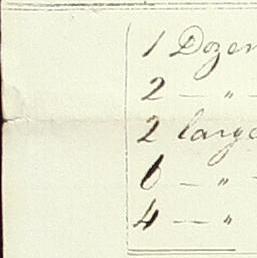 1 Dozen
2 — " —
2 large
6 — " —
4 — "